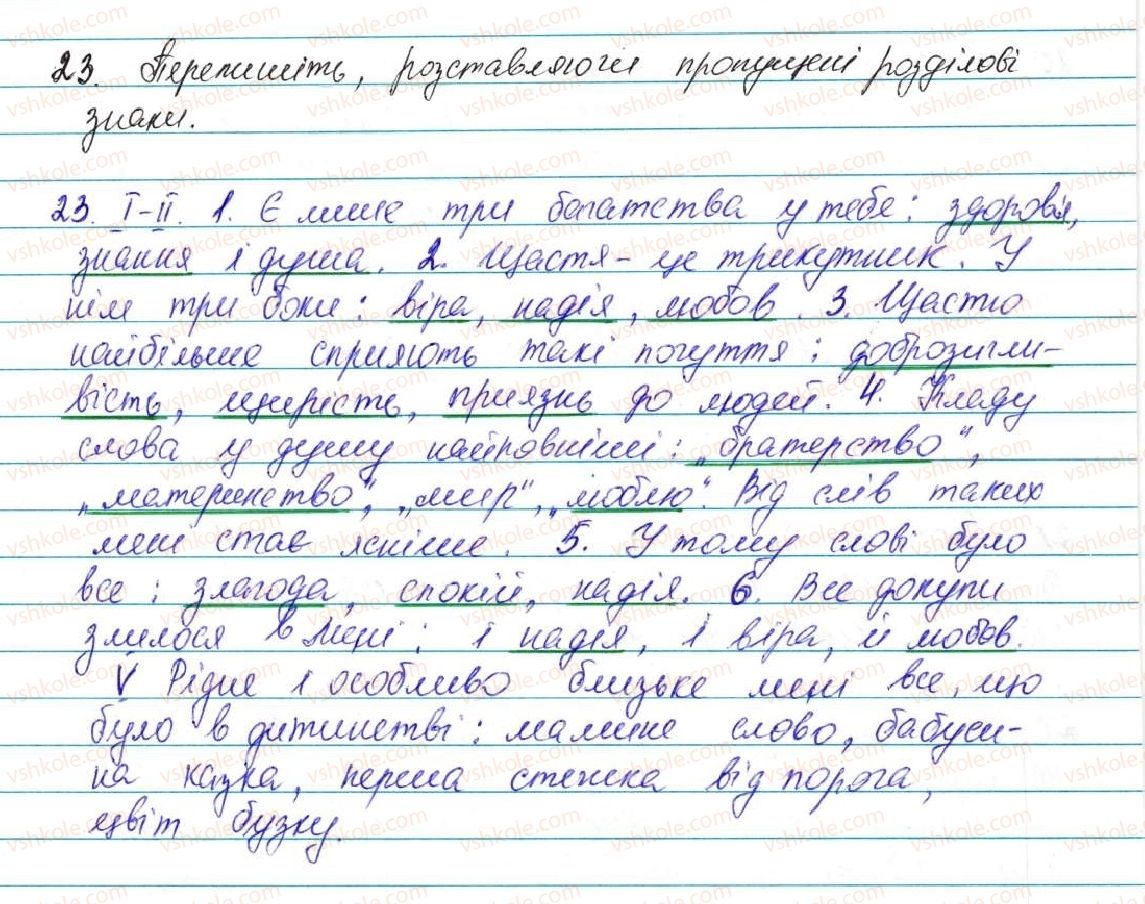 23. Перепишіть, розставляючи пропущені розділові
знаки.
23. І-ІІ. 1. Є лише три багатства у тебе: здоров'я,
знання і душа. 2. Щастя - це трикутник. У
нім три боки: віра, надія, любов. 3. Щастю
найбільше сприяють такі почуття: доброзичли-
вість, щирість, приязнь до людей. 4. Кладу
слова у душу найповніші: „братерство",
„материнство", „мир", „люблю". Від слів таких
мені стає ясніше. 5. У тому слові було
все: злагода, спокій, надія. 6. Все докупи
злилося в мені: і надія, і віра, й любов.
V Рідне і особливо близьке мені все, що
було в дитинстві: мамине слово, бабуси-
на казка, перша стежка від порога,
цвіт бузку.